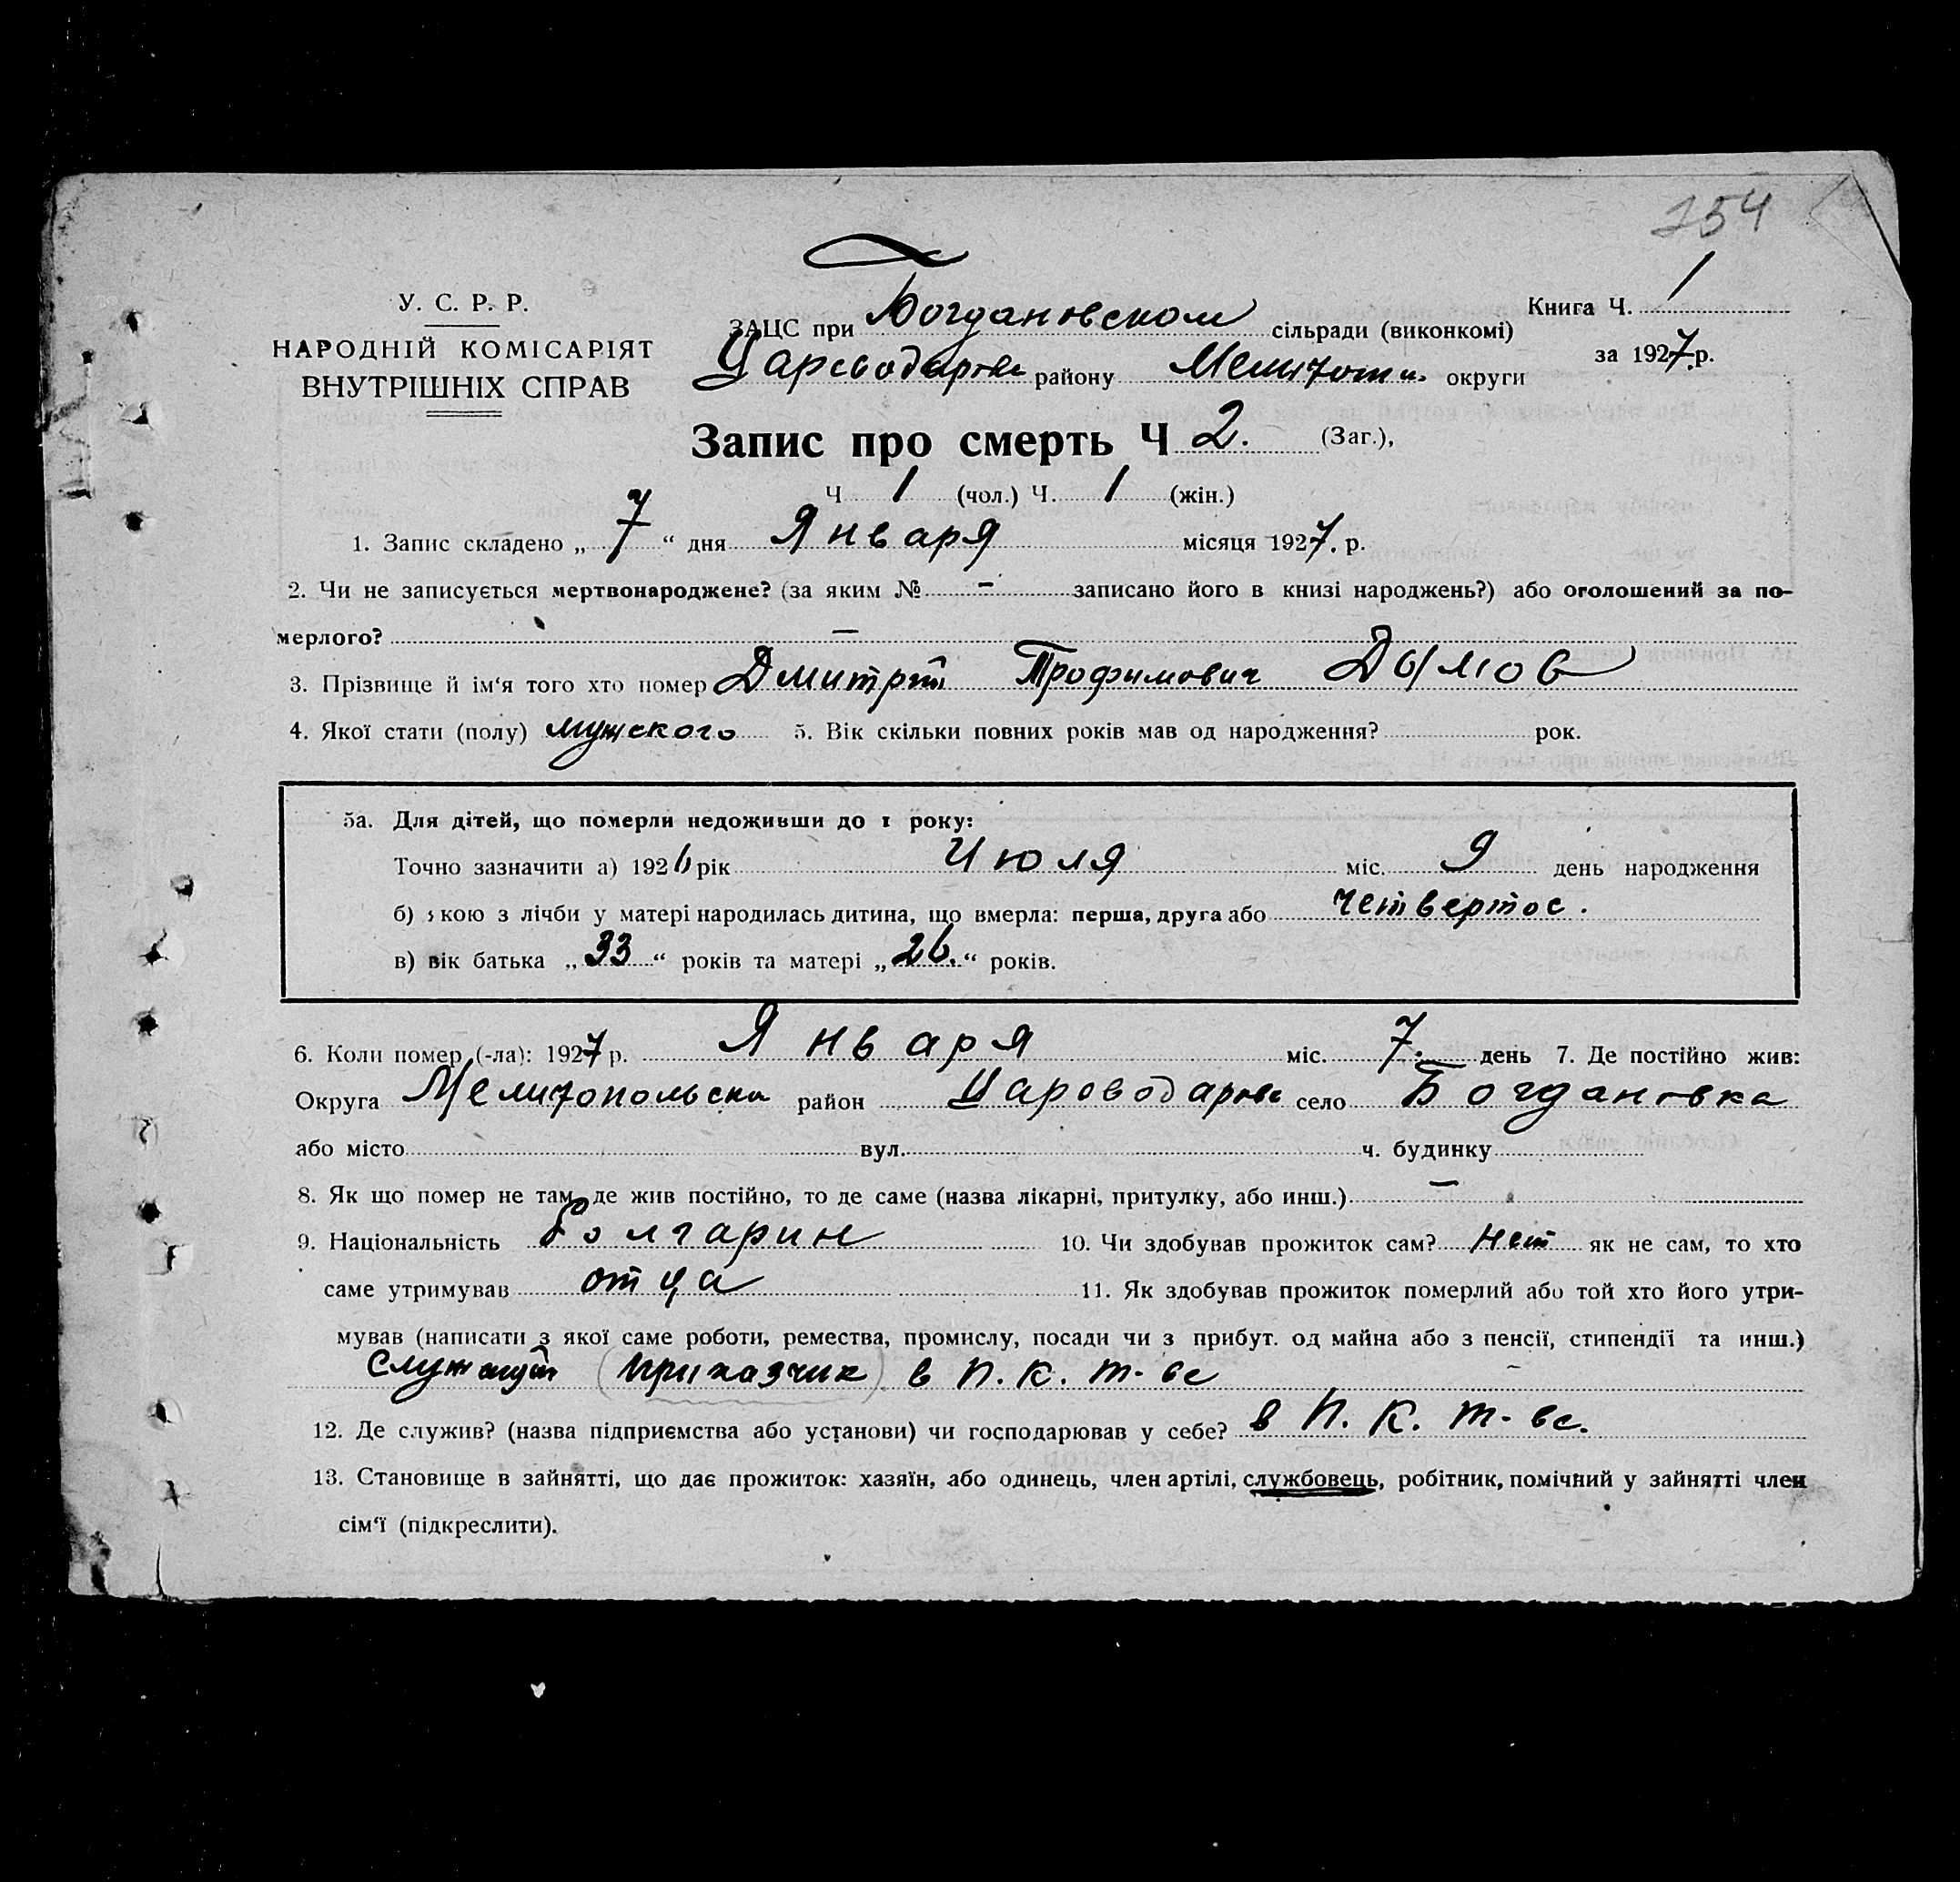 254
У. С. Р. Р.
НАРОДНІЙ КОМІСАРІЯТ
ВНУТРІШНІХ СПРАВ
Книга Ч. 1
за 1927 р.
ЗАЦС при Богдановском сільради (виконкомі)
району округи
Запис про смерть Ч 2. (Заг.),
Ч 1 (чол.) Ч. 1 (жін.)
1. Запис складено „ 7 “ дня Января місяця 1927. р.
2. Чи не записується мертвонароджене? (за яким № — записано його в книзі народжень?) або оголошений за по-
мерлого? —
3. Прізвище й ім‘я того хто помер Дмитрий Трофимович Дымов
4. Якої стати (полу) мужского 5. Вік скільки повних років мав од народження? рок.
5а. Для дітей, що померли недоживши до 1 року:
Точно зазначити а) 1926 рік Июля міс. 9 день народження
б) якою з лічби у матері народилась дитина, що вмерла: перша, друга або четвертое.
в) вік батька „ 33 “ років та матері „ 26. “ років.
6. Коли помер (-ла): 1927 р. Января міс. 7. день 7. Де постійно жив:
Округа Мелитопольска район село Богдановка
або місто вул. ч. будинку
8. Як що помер не там де жив постійно, то де саме (назва лікарні, притулку, або инш.) —
9. Національність болгарин 10. Чи здобував прожиток сам? Нет як не сам, то хто
саме утримував отца 11. Як здобував прожиток померлий або той хто його утри-
мував (написати з якої саме роботи, ремества, промислу, посади чи з прибут. од майна або з пенсії, стипендії та инш.)
(приказчик) в П. К. Т-ве
12. Де служив? (назва підприємства або установи) чи господарював у себе? в П. К. Т-ве.
13. Становище в зайнятті, що дає прожиток: хазяїн, або одинець, член артілі, службовець, робітник, помічний у зайнятті член
сім‘ї (підкреслити).